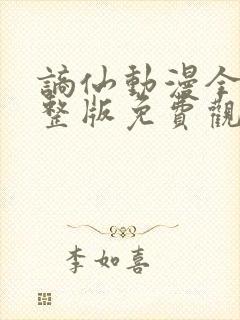 謫仙動漫全
整版免費觀
李如喜